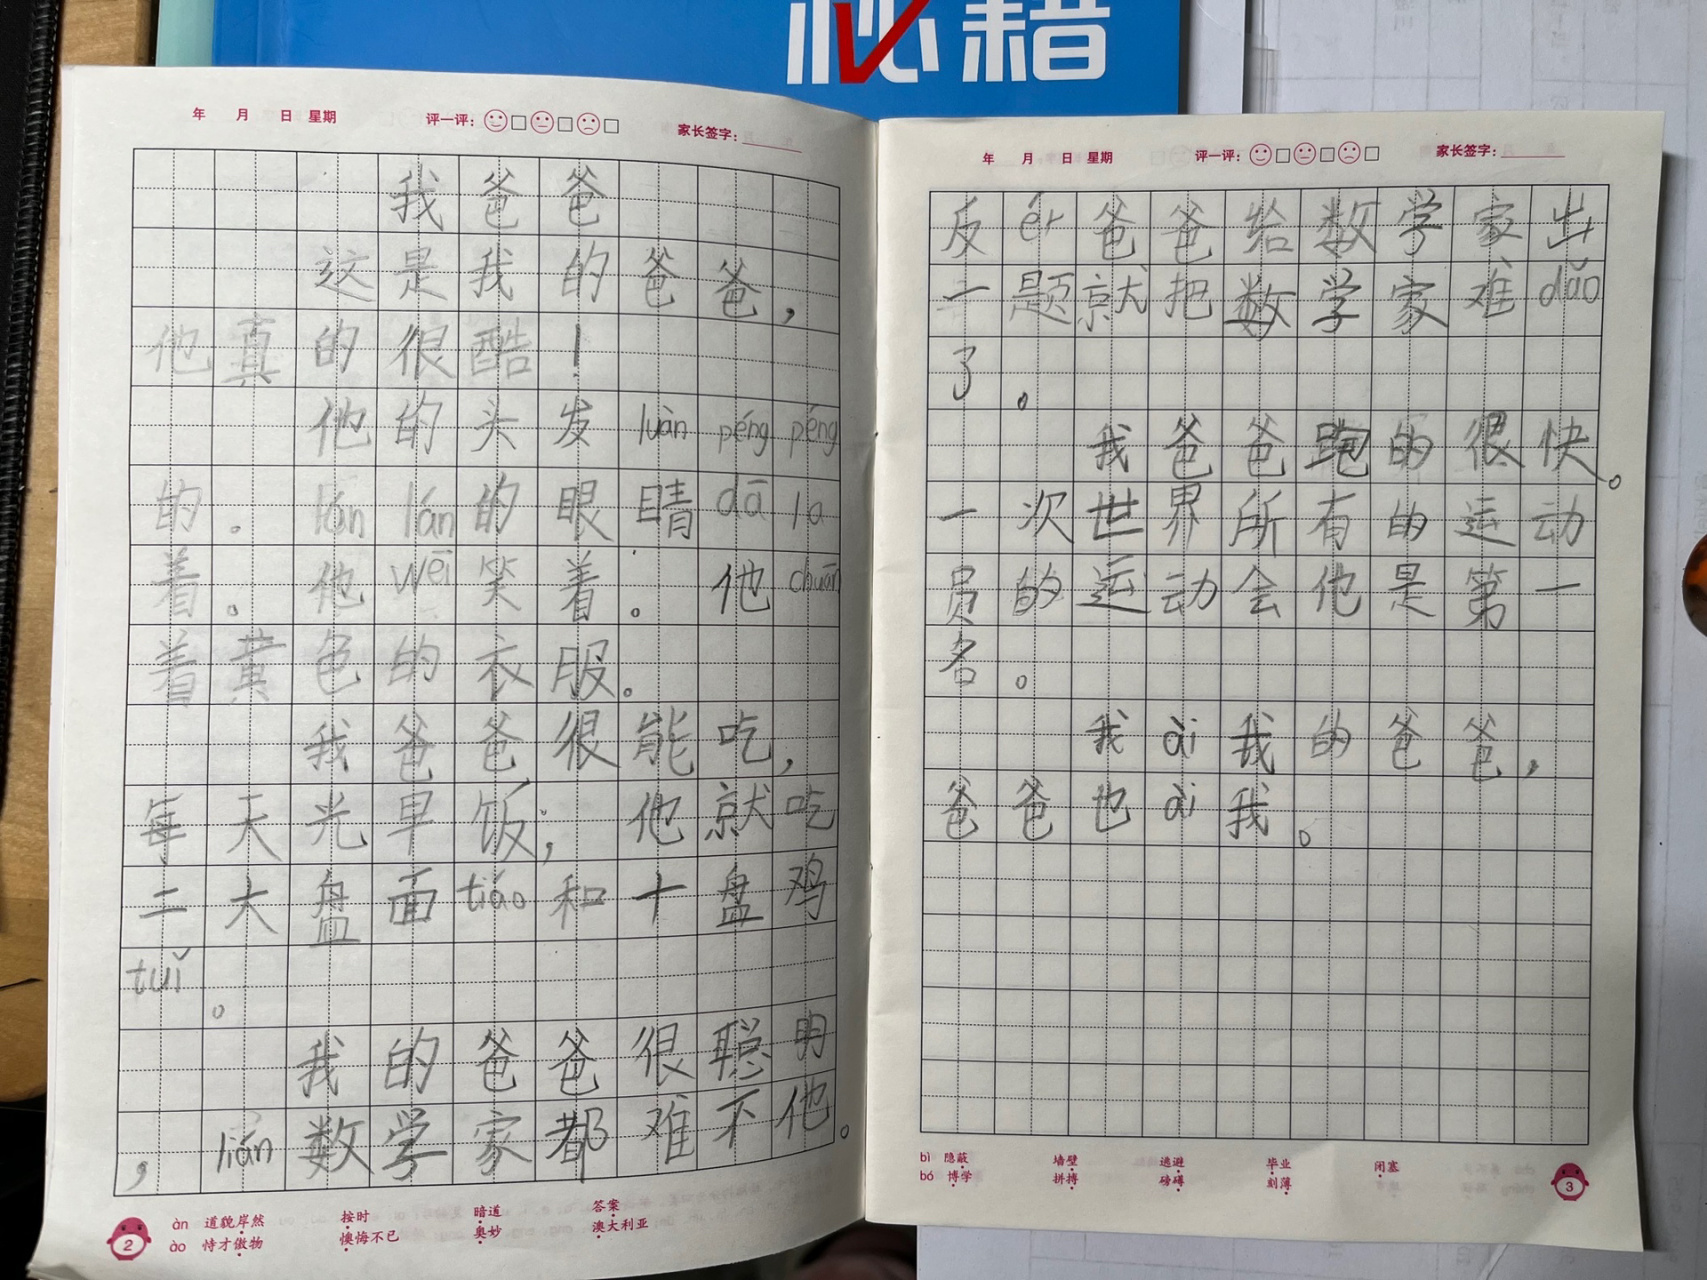 秘籍
年 月 日 星期 评一评: 家长签字:
我爸爸
这是我的爸爸,
他真的很酷!
他的头发luàn péng péng
的。lán lán的眼睛dā la
着。他wēi笑着。他chuān
着黄色的衣服。
我爸爸很能吃,
每天光早饭;他就吃
二大盘面tiáo和十盘鸡
tuǐ。
我的爸爸很聪明
,lián数学家都难不他。
àn 道貌岸然 按时 暗道 答案
ào 恃才傲物 懊悔不已 奥妙 澳大利亚
2
年 月 日 星期 评一评: 家长签字:
反ér爸爸给数学家出
一题就把数学家难dǎo
了。
我爸爸跑的很快。
一次世界所有的运动
员的运动会他是第一
名。
我ài我的爸爸,
爸爸也ài我。
bì 隐蔽 墙壁 逃避 毕业 闭塞
bó 博学 拼搏 磅礴 刻薄
3